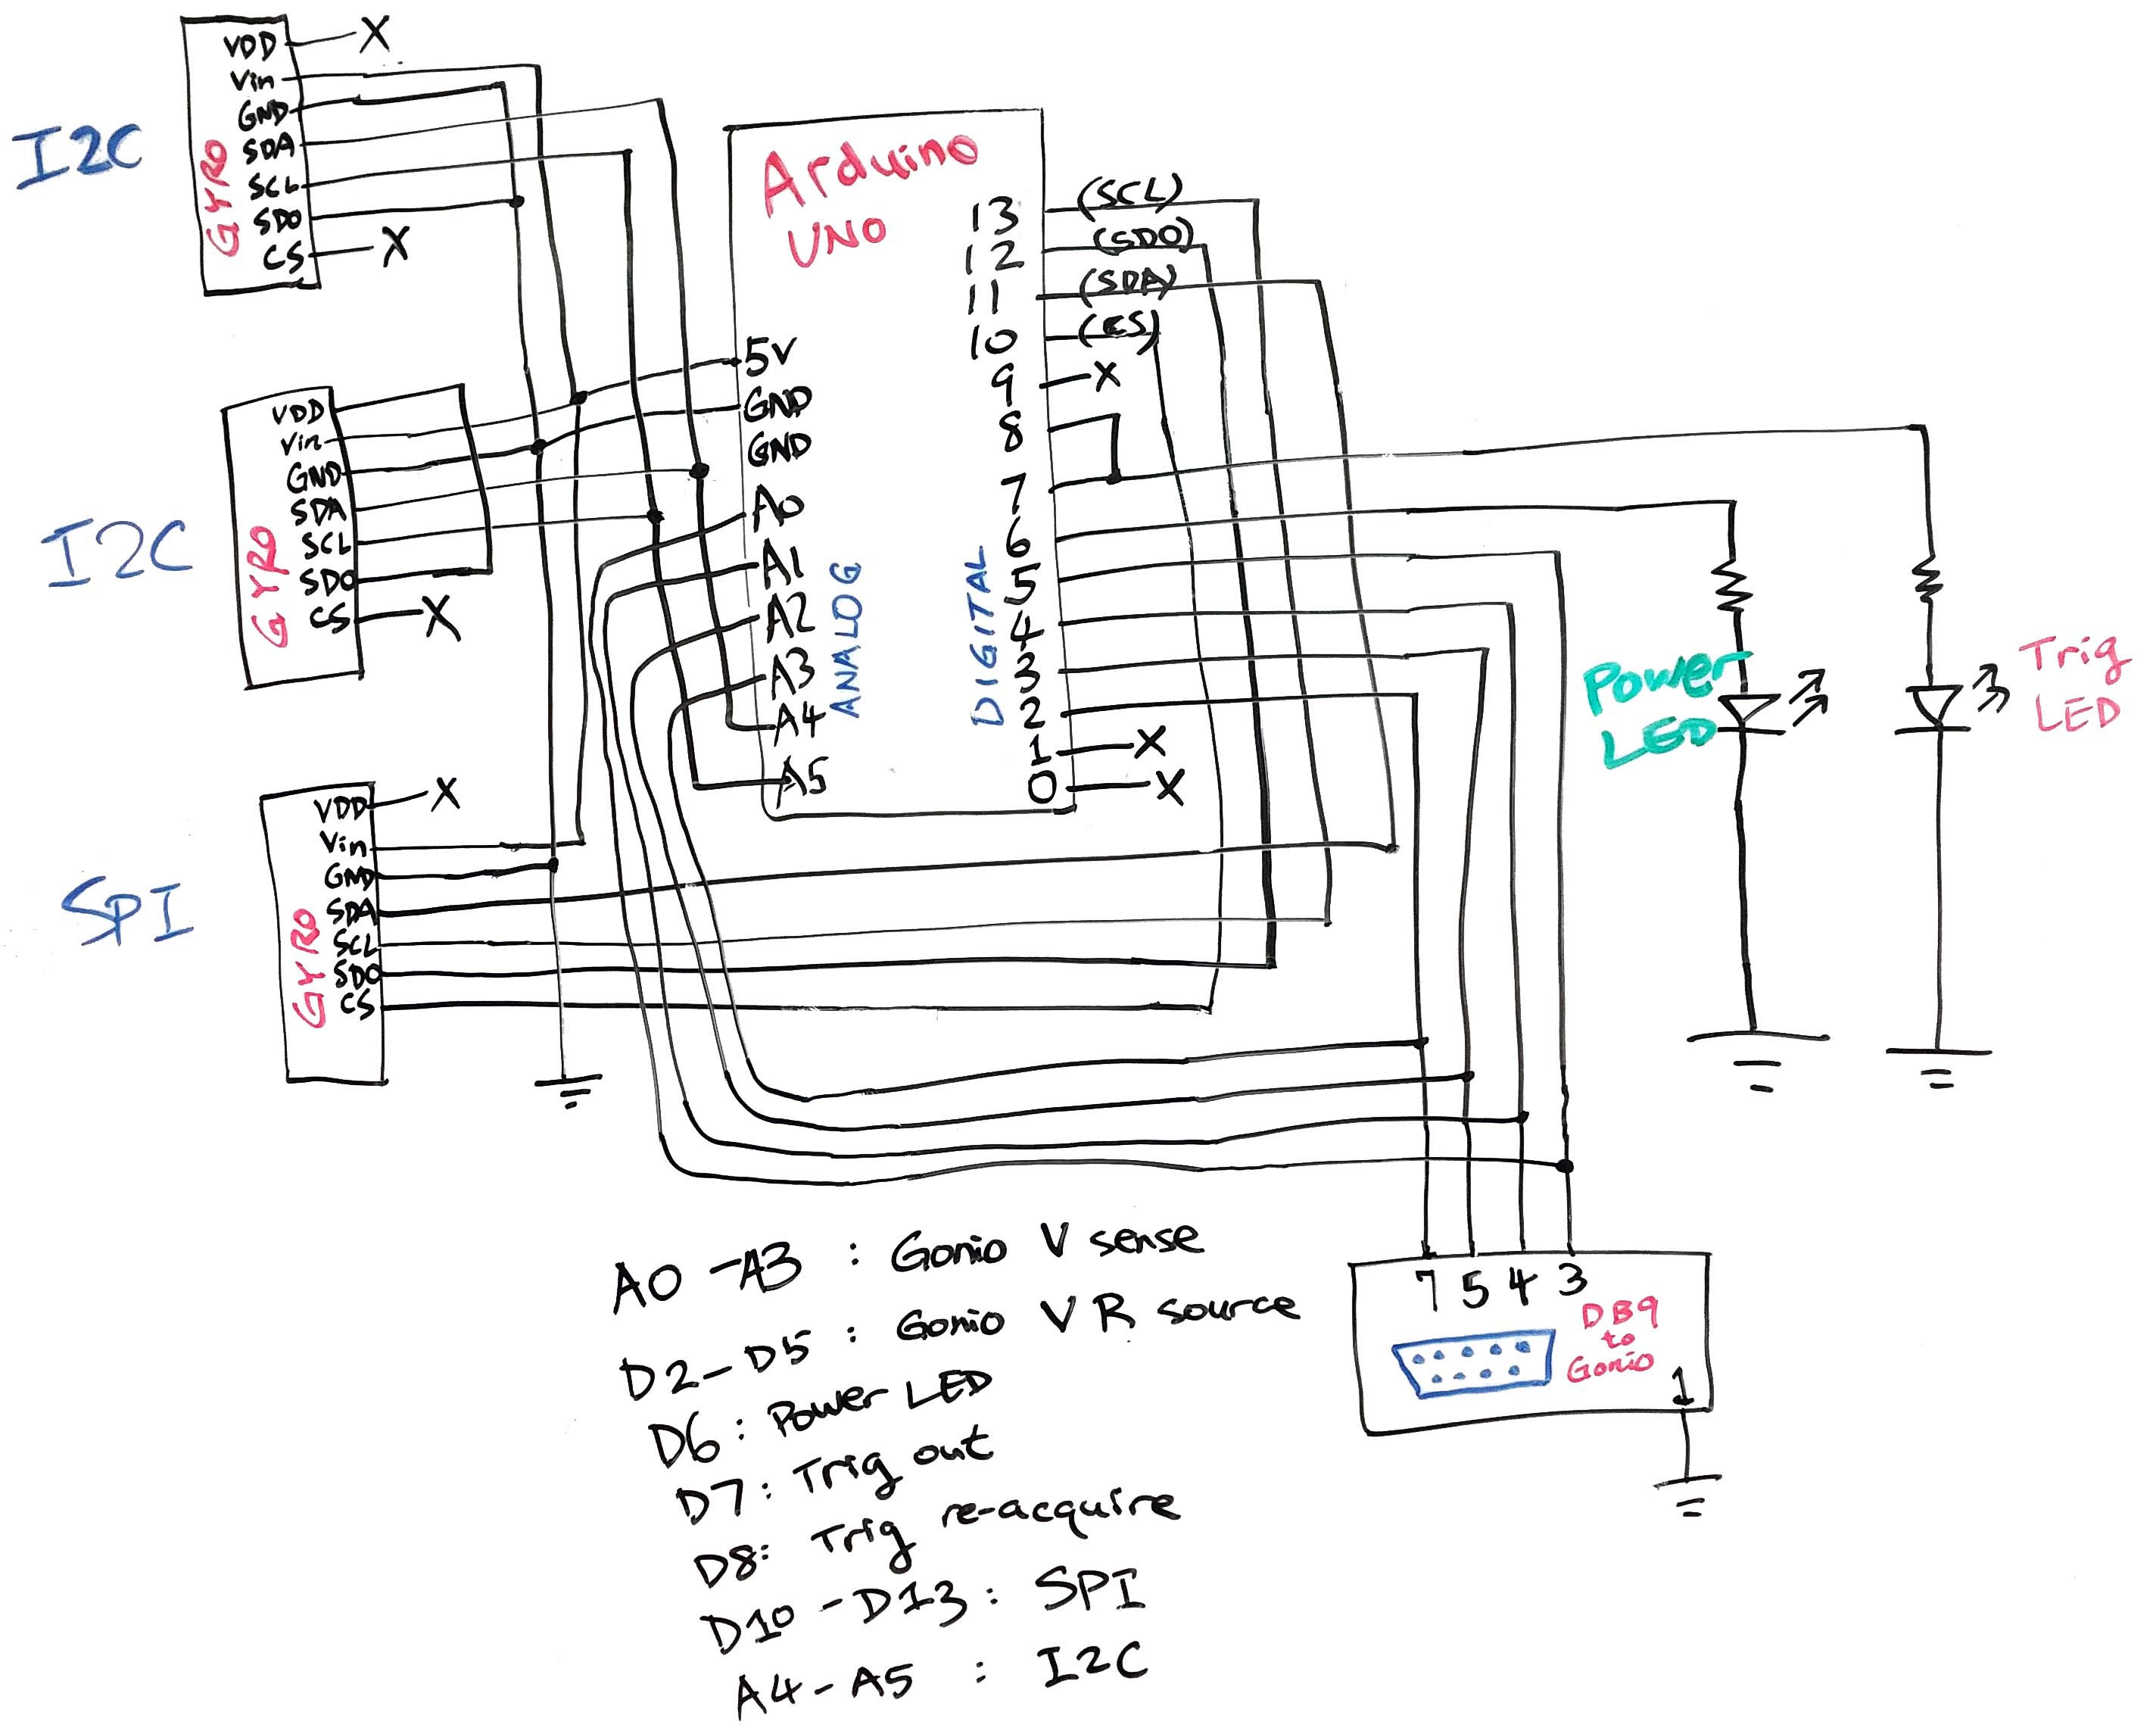 I2C
GYRO
VDD X
Vin
GND
SDA
SCL
SDO
CS X
I2C
GYRO
VDD
Vin
GND
SDA
SCL
SDO
CS X
SPI
GYRO
VDD X
Vin
GND
SDA
SCL
SDO
CS
Arduino
UNO
5V
GND
GND
A0
A1
A2
A3
A4
A5
ANALOG
DIGITAL
13 (SCL)
12 (SDO)
11 (SDA)
10 (CS)
9 X
8
7
6
5
4
3
2
1 X
0 X
Power
LED
Trig
LED
7 5 4 3
DB9
to
Gonio
1
A0 - A3 : Gonio V sense
D2 - D5 : Gonio VR source
D6 : Power LED
D7 : Trig out
D8: Trig re-acquire
D10 - D13 : SPI
A4 - A5 : I2C